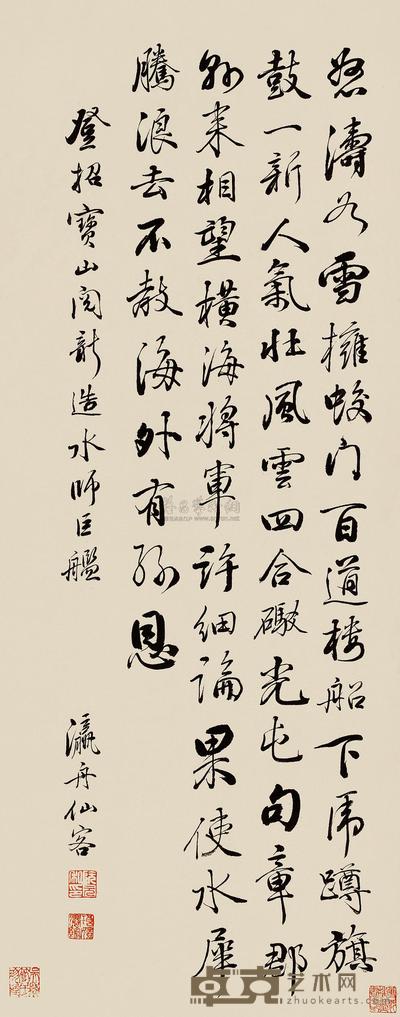 怒濤如雪擁蛟門百道樓船下虎蹲旗
鼓一新人氣壯風雲四合礮光屯句章郡
縣來相望橫海將軍許細論果使水犀
騰浪去不教海外有孫恩
登招寶山閱新造水師巨艦
瀛舟仙客
卓克艺术网
www.zhuokearts.com